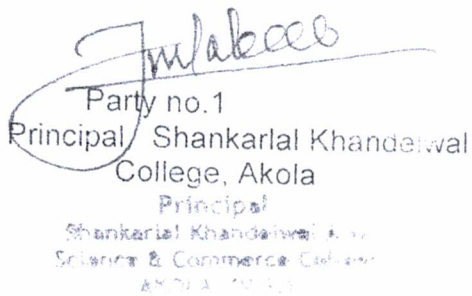 Party no.1
Principal, Shankarlal Khandelwal
College, Akola
Principal
Shankarlal Khandelwal Arts
Science & Commerce College
AKOLA